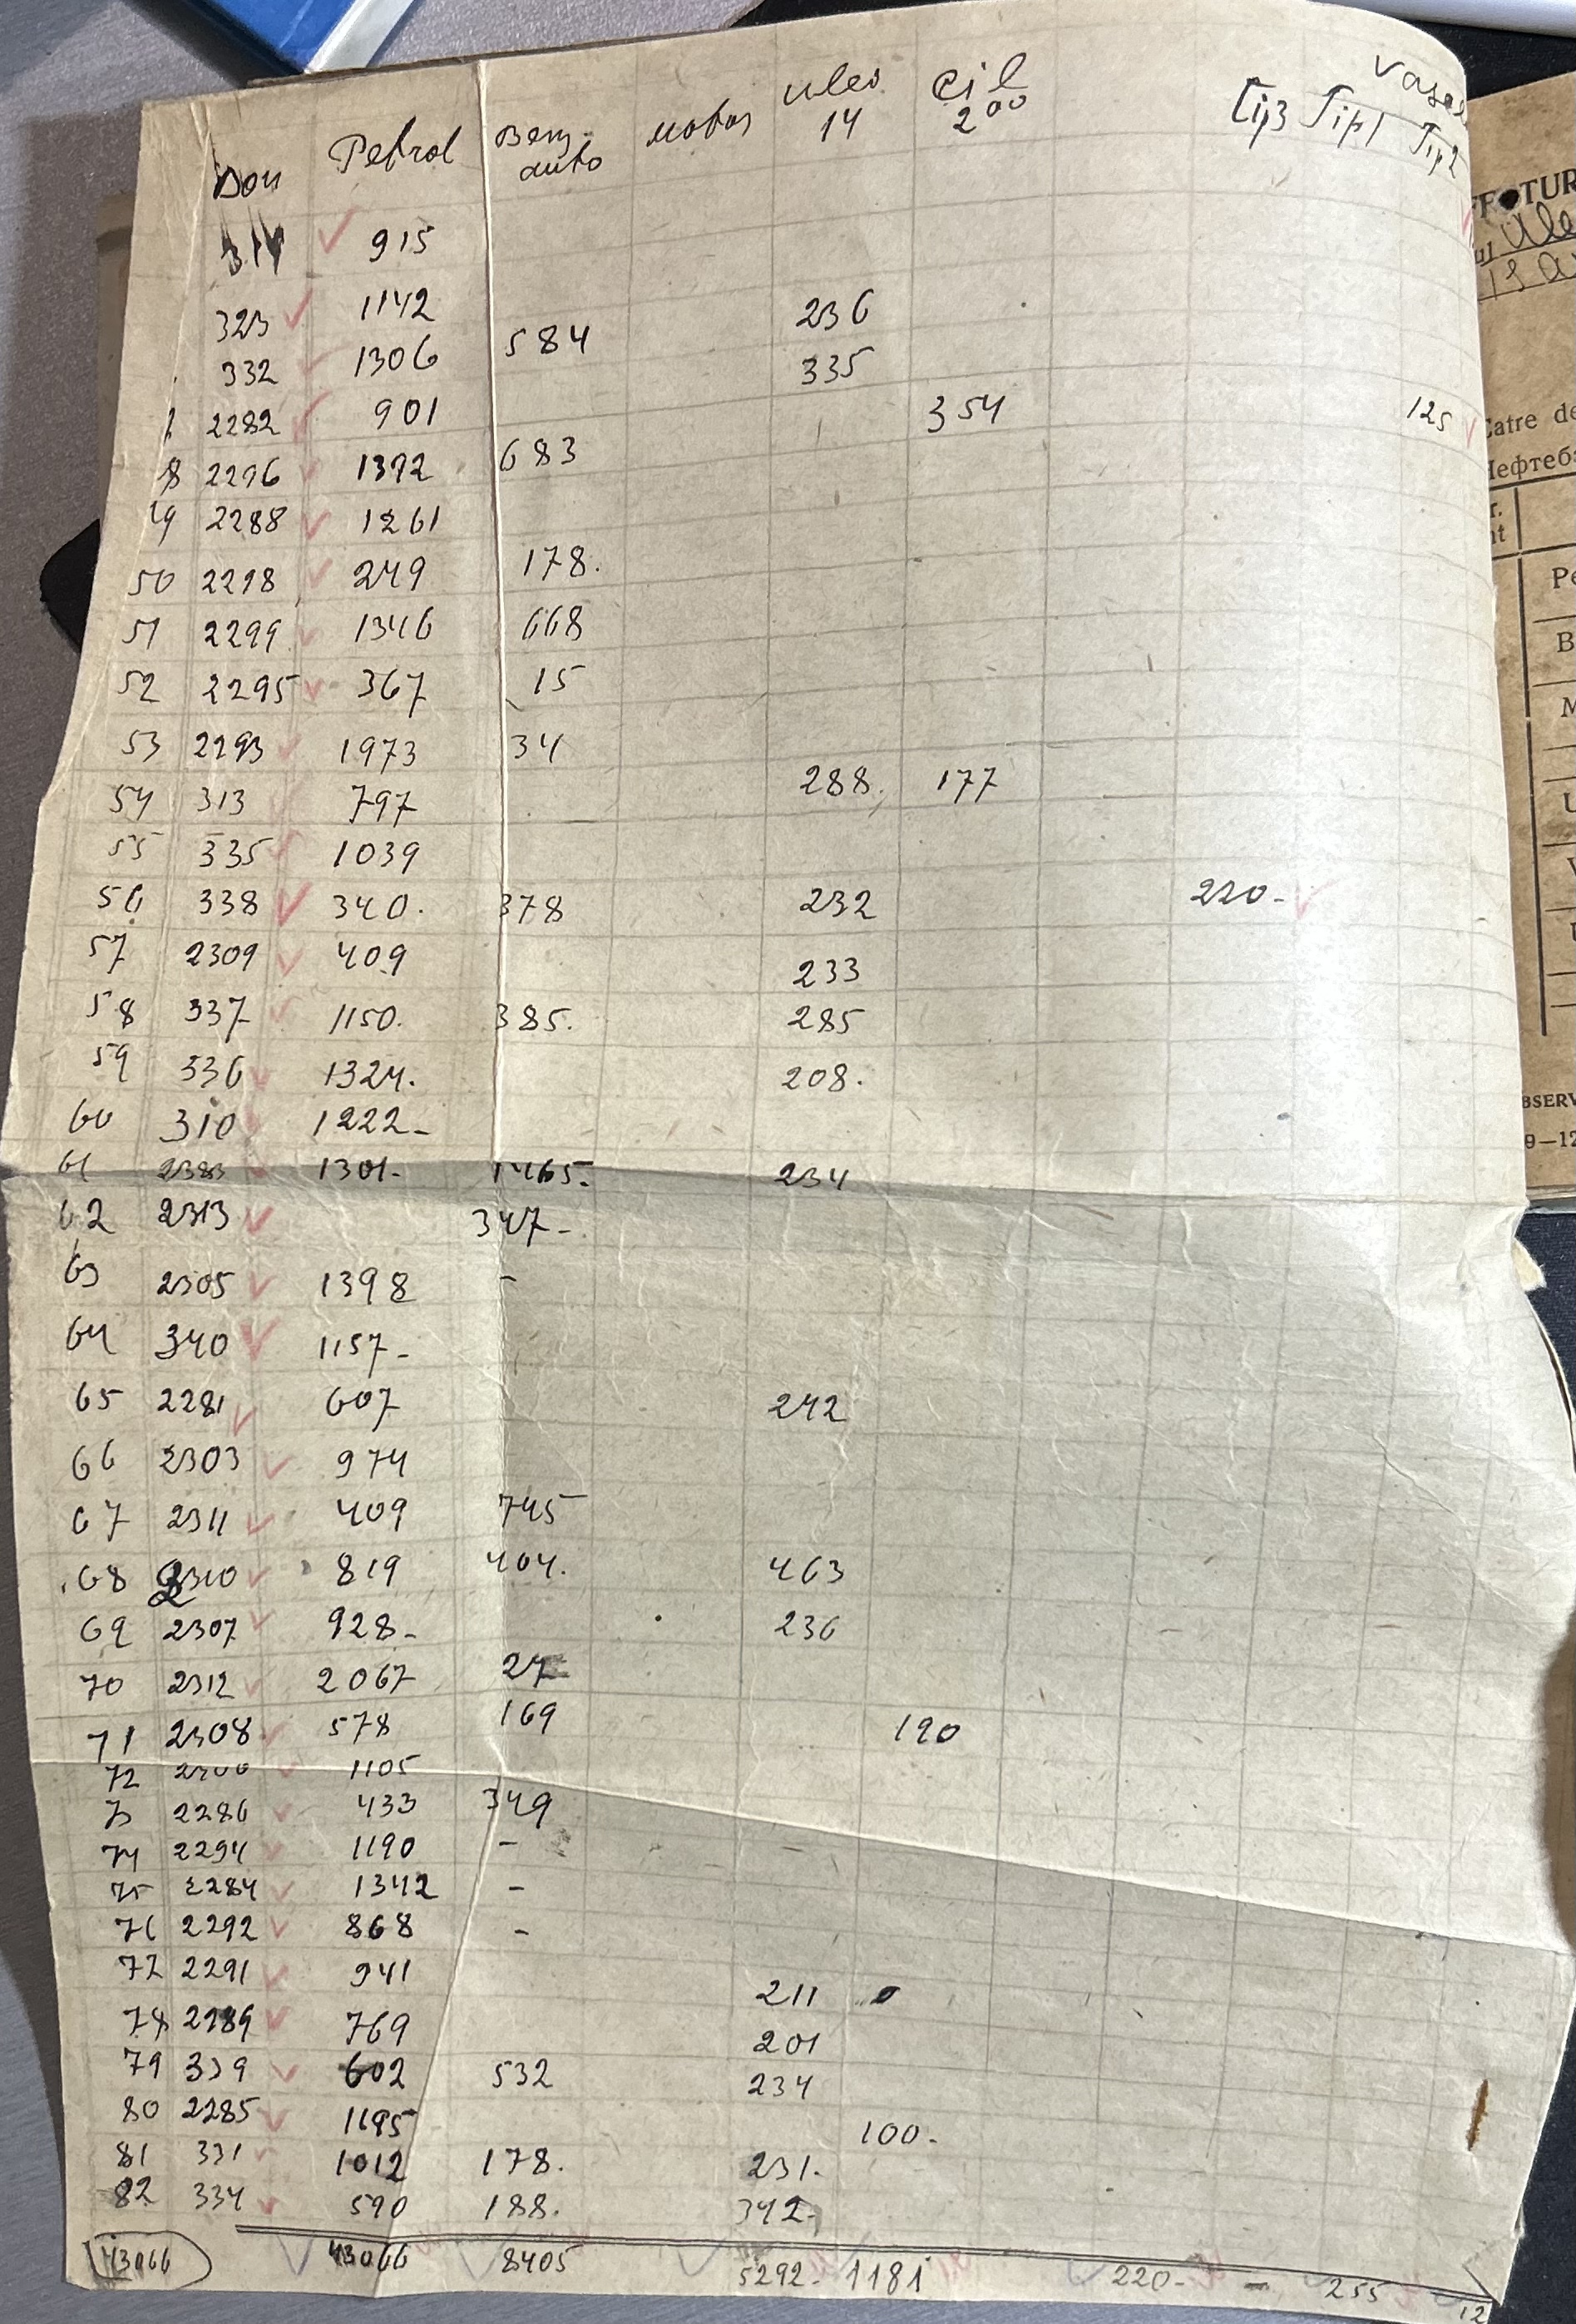 Vase
Don Petrol Benz auto Motor Uleo 14 Cil 200 Tip3 Tip1 Tip2
314 915
323 1142 236
332 1306 584 335
2282 901 354 125
8 2296 1392 683
49 2288 1261
50 2298 249 178.
51 2299 1346 668
52 2295 367 15
53 2293 1973 34
54 313 797 288. 177
55 335 1039
56 338 340. 378 232 220-
57 2309 409 233
58 337 1150. 385. 285
59 336 1324. 208.
60 310 1222-
61 1301- 1465. 234
62 2313 347-
63 2305 1398 -
64 340 1157-
65 2281 607 242
66 2303 974
67 2311 409 745
68 2310 819 404. 463
69 2307 928- 236
70 2312 2067 27
71 2308 578 169 190
72 1105
73 2286 433 349
74 2294 1190 -
75 2284 1342 -
76 2292 868 -
77 2291 941 211
78 2289 769 201
79 339 602 532 234
80 2285 1195 100.
81 331 1012 178. 231.
82 334 590 188. 342-
43066 43066 8405 5292- 1181 220- - 255 12
FACTUR
13
Catre de
Нефтеб
r.
nt
Pe
B
M
U
V
U
OBSERV
9-12